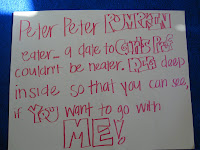 Peter Peter PUMPKIN
eater_ a date to
couldn't be neater. DIG deep
inside so that you can see,
if YOU want to go with
ME!